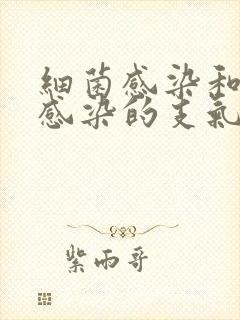 細菌感染和
感染的支氣
紫雨哥